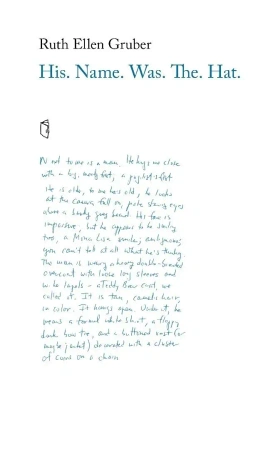 Ruth Ellen Gruber
His. Name. Was. The. Hat.
Next to me is a man. He hugs me close
with a big, meaty fist, a pugilist's fist
He is old, to me he's old, he looks
at the camera full on, pale steady eyes
above a bushy gray beard. His face is
impassive, but he appears to be smiling
too, a Mona Lisa smile; ambiguous,
you can't tell at all what he's thinking.
The man is wearing a heavy double-breasted
overcoat with loose long sleeves and
wide lapels - a Teddy Bear coat, we
called it. It is tan, camel's hair,
in color. It hangs open. Under it, he
wears a formal white shirt, a floppy
dark bow tie, and a buttoned vest (or
maybe jacket) decorated with a cluster
of coins on a chain